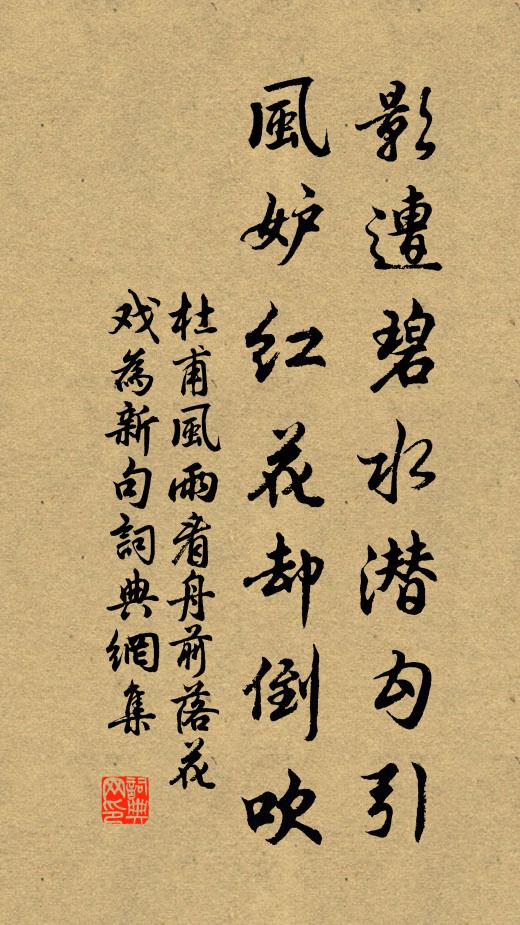 影遭碧水潜勾引
風妒红花却倒吹
杜甫風雨看舟前落花
戏為新句詞典網集
詞典网印